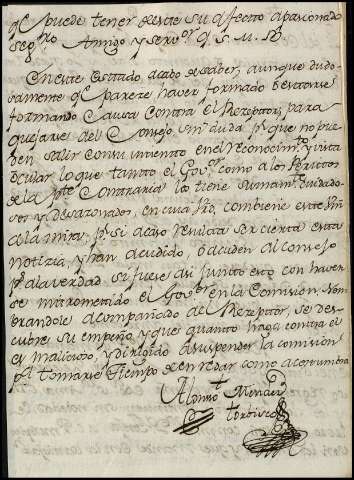 qe puede tener de este su afecto apasionado
segro Amigo y servor q. S. M. B.
En este estado, acabo de saber, aunque dudo-
samente qe parece haver formado o estarse
formando Causa contra el Rezeptor, para
quejarse del Consejo sin duda pr que no pue-
den salir con su intento en el reconocimto y vista
ocular lo que tanto el Govor como a los
de la pte Contraria los tiene sumamte cuidado-
sos y desazonados, en cuia combiene este
a la mira, pr si acaso resultare ser cierta esta
notizia, y han acudido, o acuden al Consejo
pr a la verdad si fuese asi junto esto con haver-
se entrometido el Govor en la Comision, nom-
brandole acompañado del Rezeptor, se des-
cubre su empeño, y que quanto haga contra el
es malicioso, y dirigido a suspender la comision
pa tomarse tiempo de enredar como acostumbra
Alonso